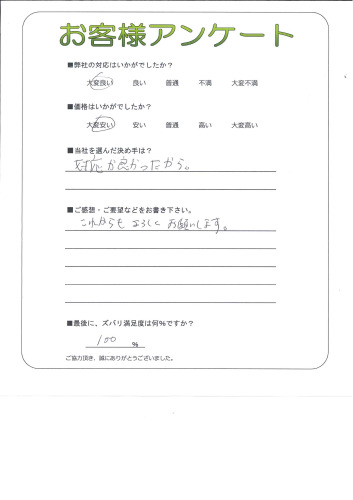 お客様アンケート
■弊社の対応はいかがでしたか?
大変良い 良い 普通 不満 大変不満
■価格はいかがでしたか?
大変安い 安い 普通 高い 大変高い
■当社を選んだ決め手は?
対応が良かったから。
■ご感想・ご要望などをお書き下さい。
これからもよろしくお願いします。
■最後に、ズバリ満足度は何%ですか?
100 %
ご協力頂き、誠にありがとうございました。